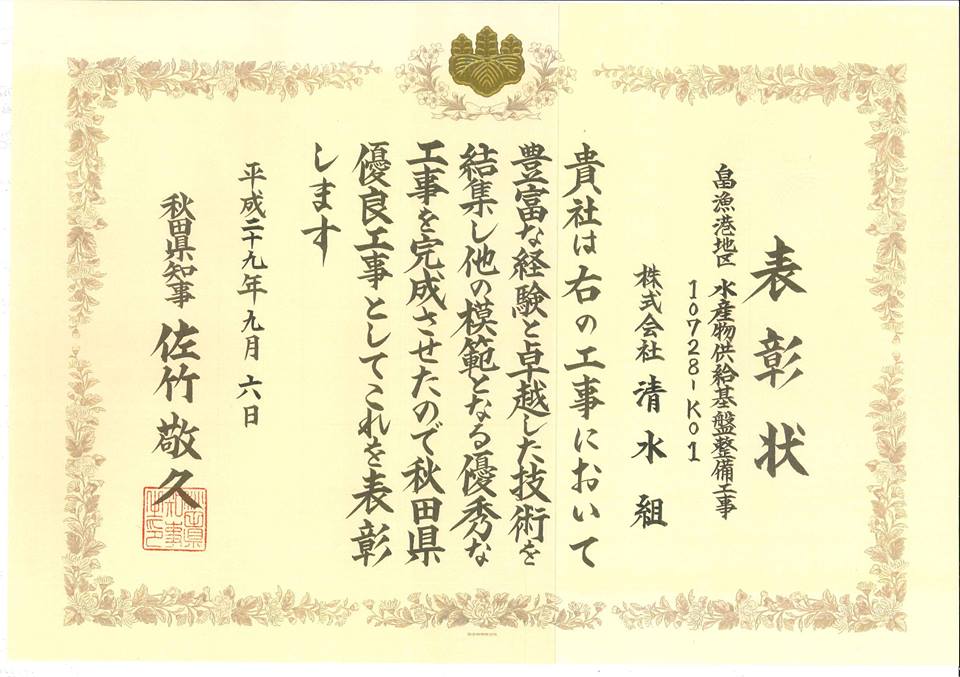 表彰状
畠漁港地区 水産物供給基盤整備工事
10728-K01
株式会社 清水組
貴社は右の工事において
豊富な経験と卓越した技術を
結集し他の模範となる優秀な
工事を完成させたので秋田県
優良工事としてこれを表彰
します
平成二十九年九月六日
秋田県知事 佐竹敬久
秋田県知事之印